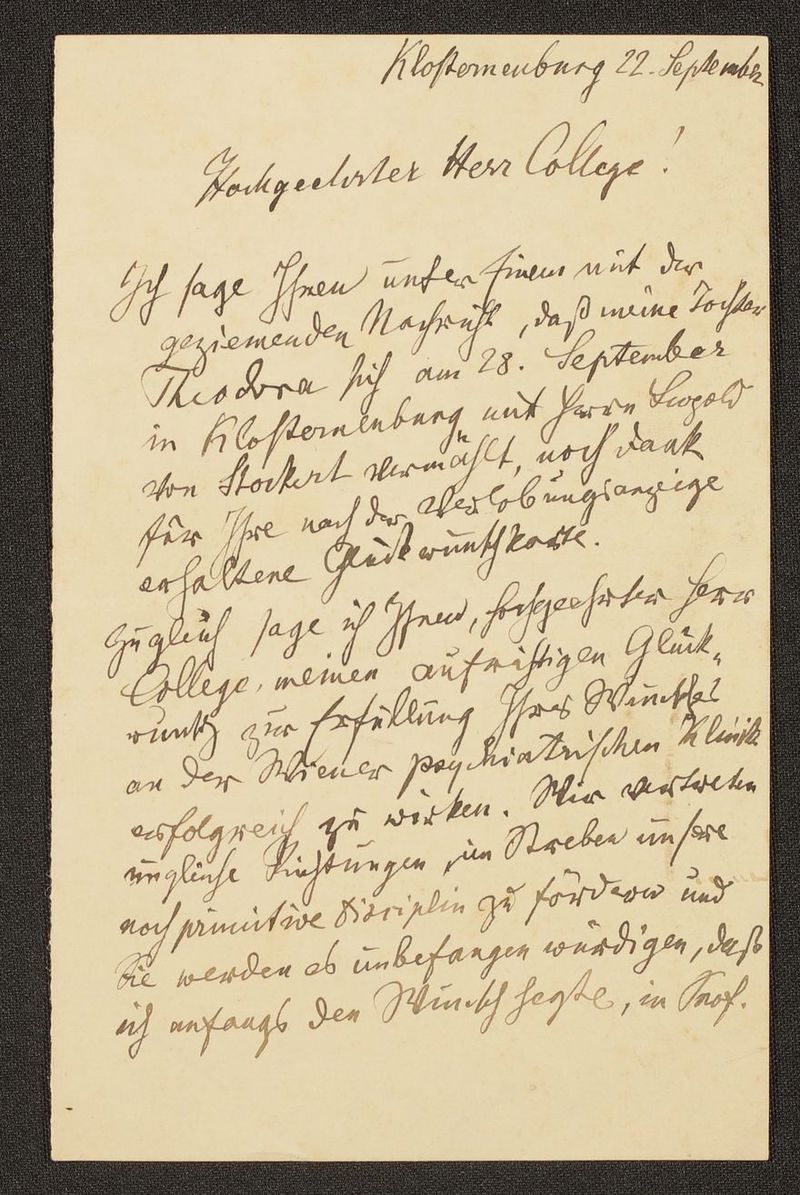 Klosterneuburg 22. September
Hochgeehrter Herr College!
Ich sage Ihnen unter Einem mit der
geziemenden Nachricht, daß meine Tochter
Theodora sich am 28. September
in Klosterneuburg mit Herrn Leopold
von Stockert vermählt, noch Dank
für Ihre nach der Verlobungsanzeige
erhaltene Glückwunschkarte.
Zugleich sage ich Ihnen, hochgeehrter Herr
College, meinen aufrichtigen Glück-
wunsch zur Erfüllung Ihres Wunsches
an der Wiener psychiatrischen Klinik
erfolgreich zu wirken. Wir vertreten
ungleiche Richtungen im Streben unsere
noch primitive Disciplin zu fördern und
Sie werden es unbefangen würdigen, daß
ich anfangs den Wunsch hegte, in Prof.